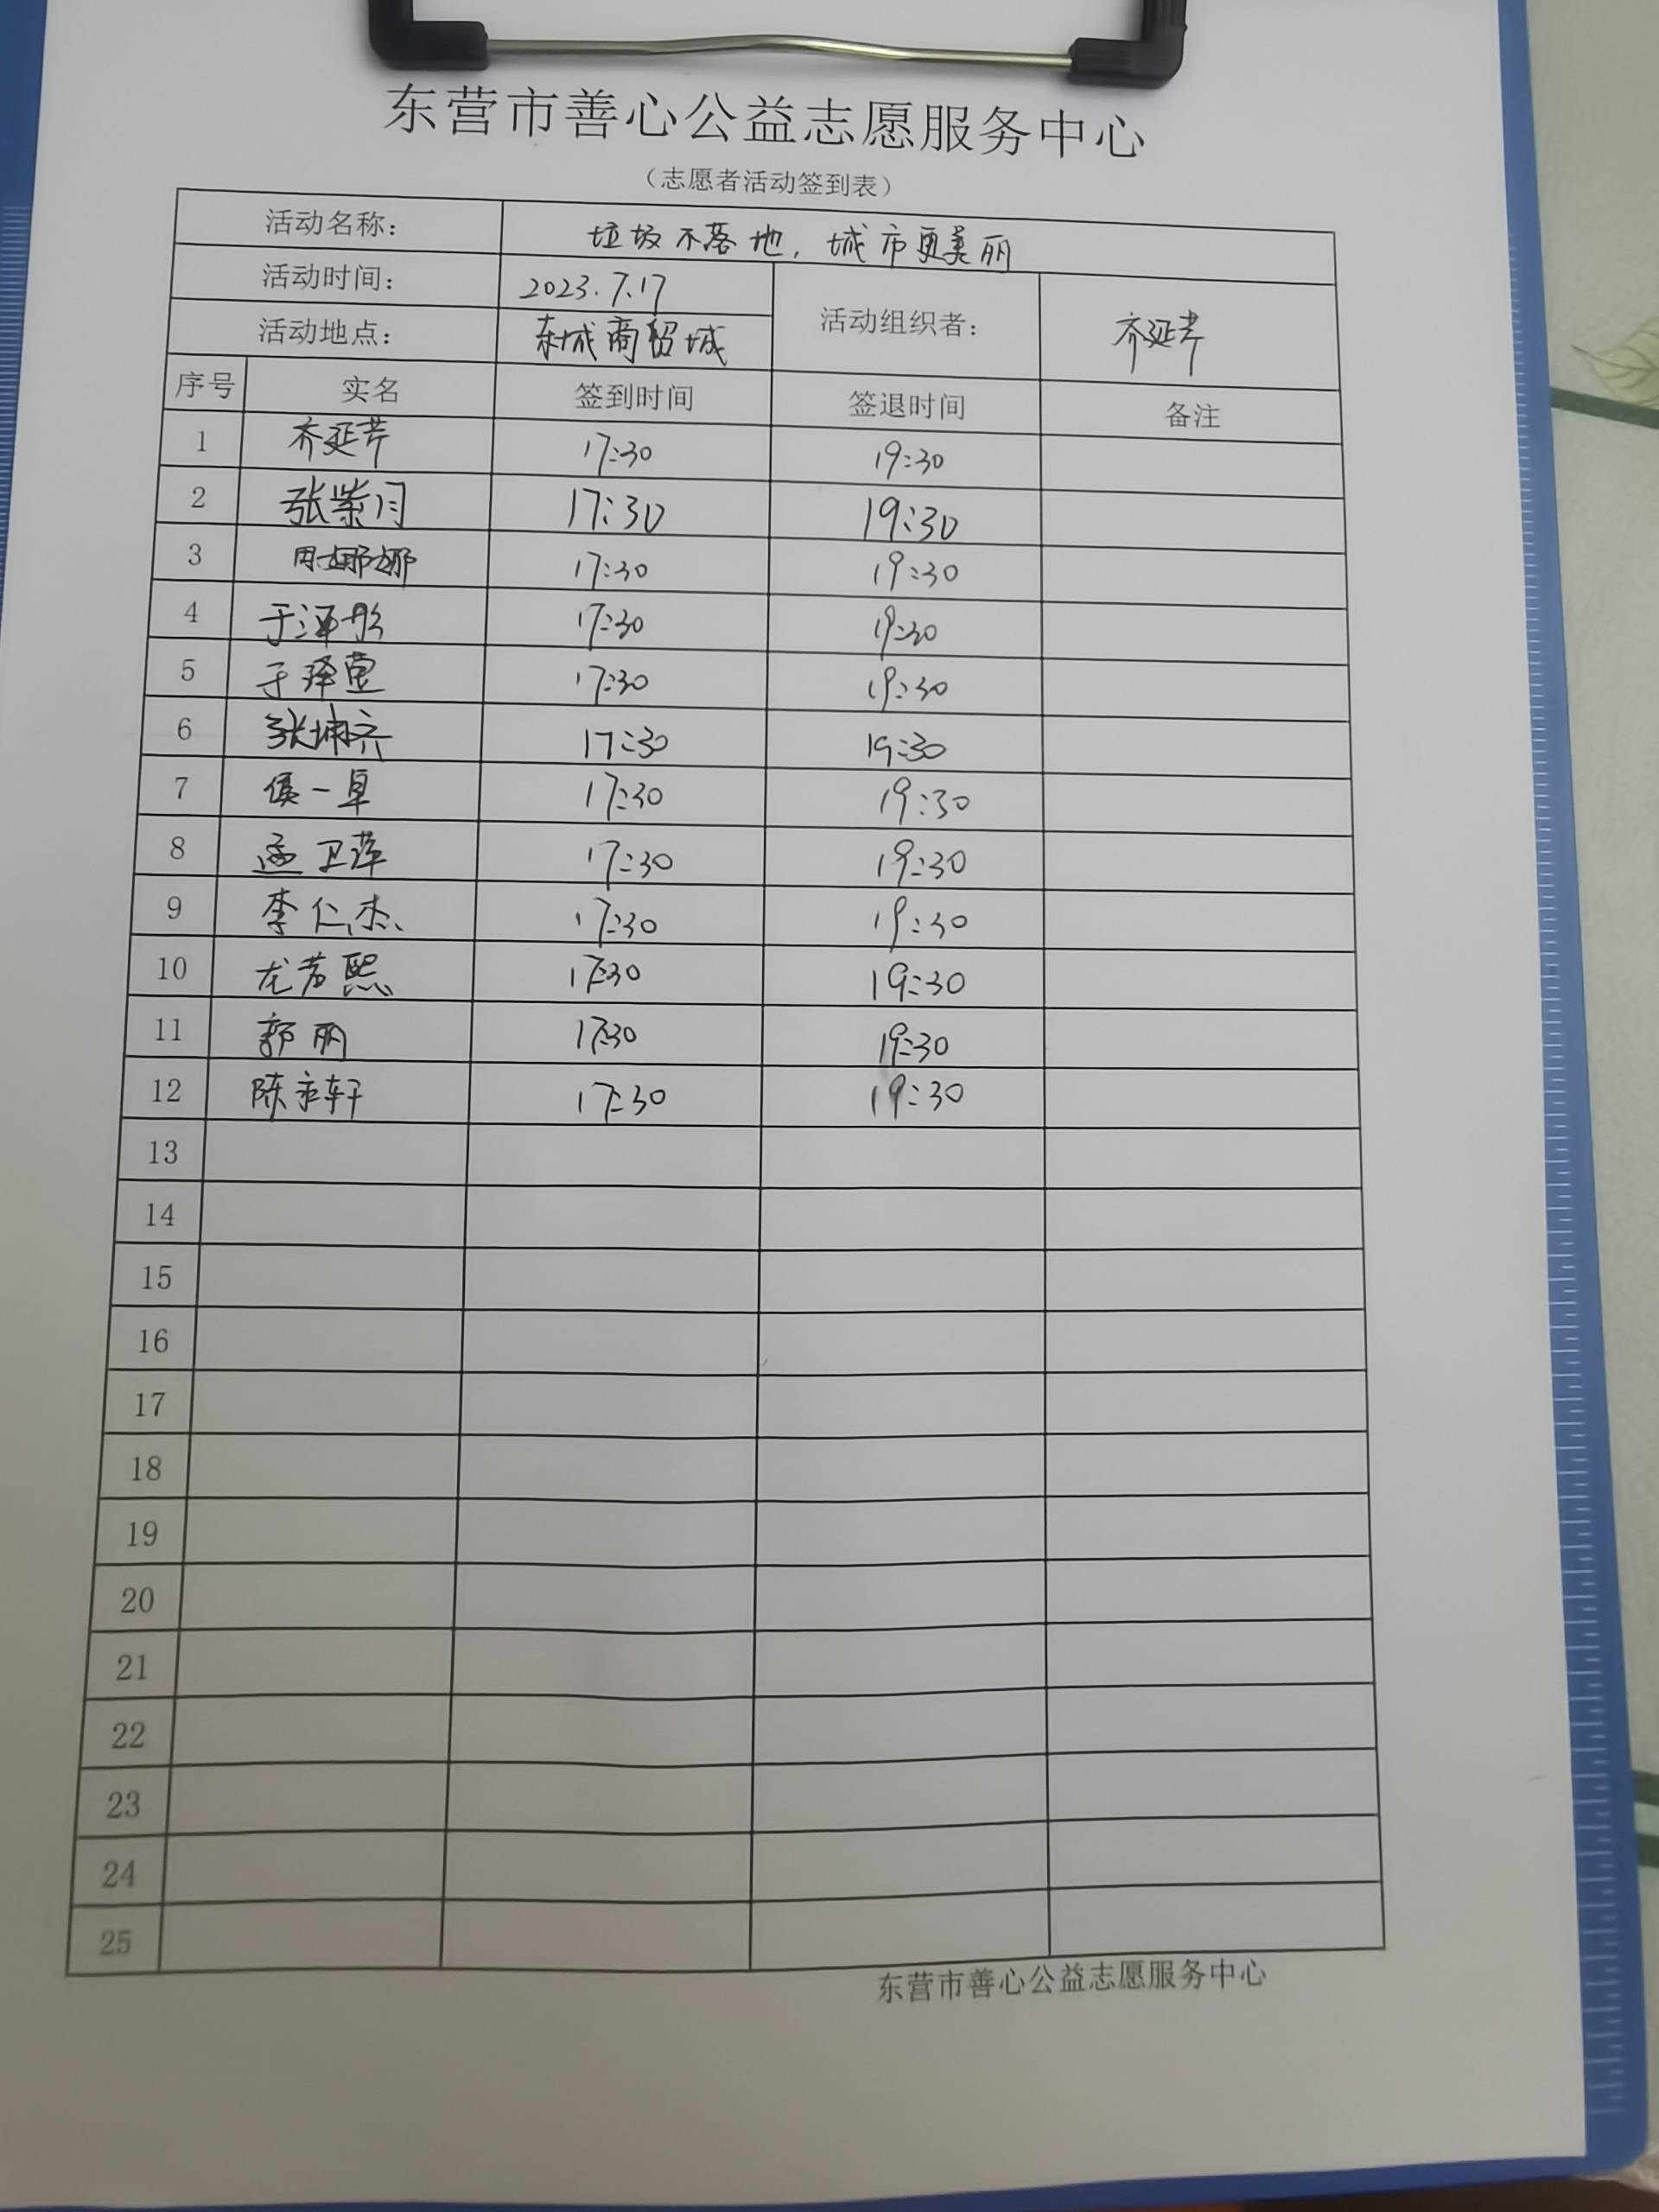 东营市善心公益志愿服务中心
（志愿者活动签到表）
活动名称： 垃圾不落地，城市更美丽
活动时间： 2023.7.17 活动组织者： 齐延芹
活动地点： 东城商贸城
序号 实名 签到时间 签退时间 备注
1 齐延芹 17:30 19:30
2 张紫月 17:30 19:30
3 周娜娜 17:30 19:30
4 于泽彤 17:30 19:30
5 于泽萱 17:30 19:30
6 张坤齐 17:30 19:30
7 侯一卓 17:30 19:30
8 孟卫萍 17:30 19:30
9 李仁杰 17:30 19:30
10 尤若熙 17:30 19:30
11 郭丽 17:30 19:30
12 陈 轩 17:30 19:30
13
14
15
16
17
18
19
20
21
22
23
24
25
东营市善心公益志愿服务中心